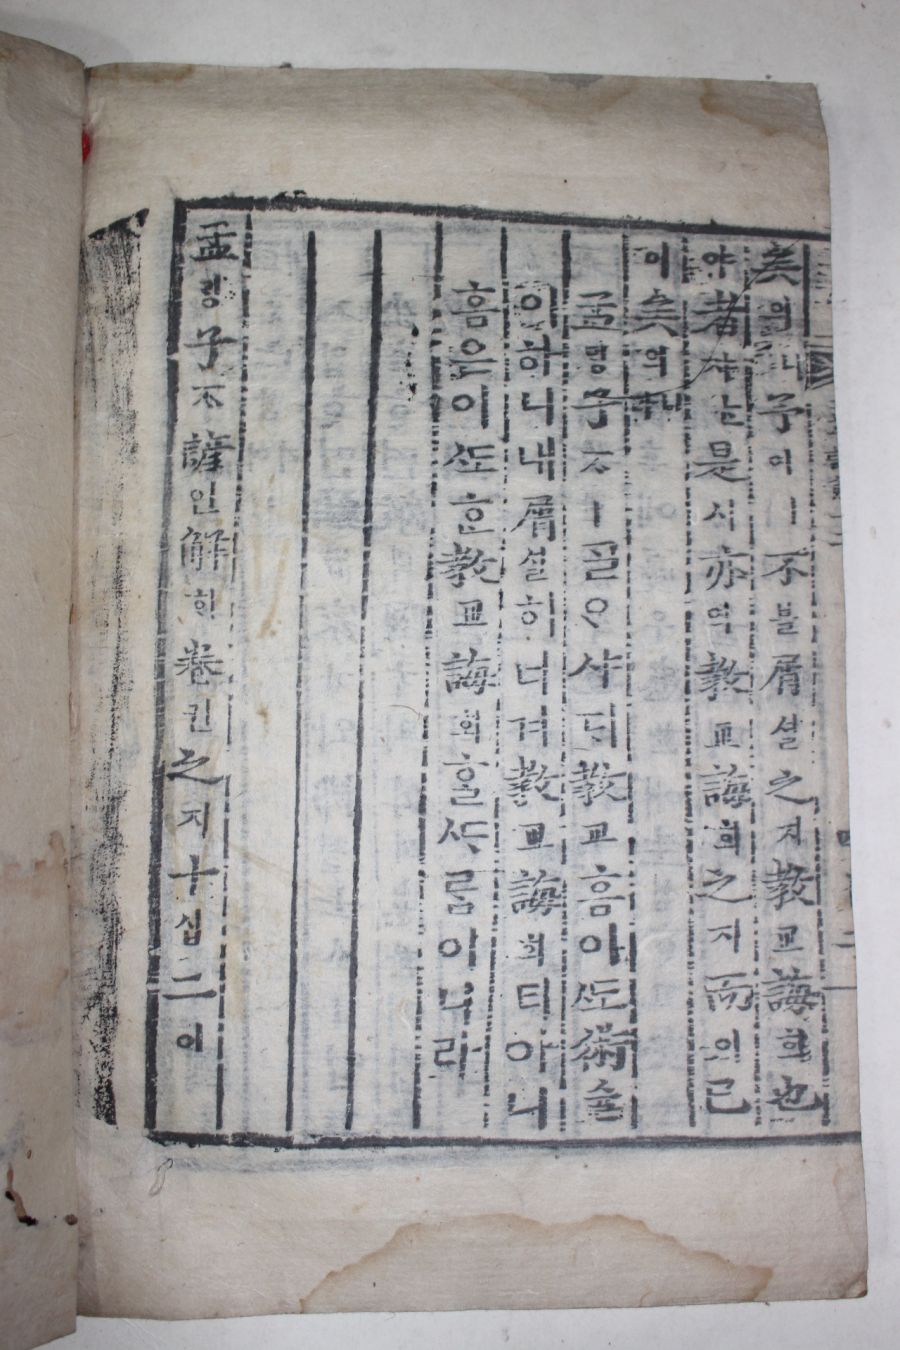 矣의니予여ㅣ不블屑셜之지敎교誨회也
야者쟈ᄂᆞᆫ是시亦역敎교誨회之지而이已
이矣의니라
孟ᄆᆡᆼ子ᄌᆞㅣᄀᆞᆯᄋᆞ샤ᄃᆡ敎교홈이ᄯᅩ術슐
이하니내屑셜히너겨敎교誨회티아니
홈은이ᄯᅩᄒᆞᆫ敎교誨회ᄒᆞᆯᄯᆞᄅᆞᆷ이니라
孟ᄆᆡᆼ子ᄌᆞ諺언解ᄒᆡ卷권之지十십二이